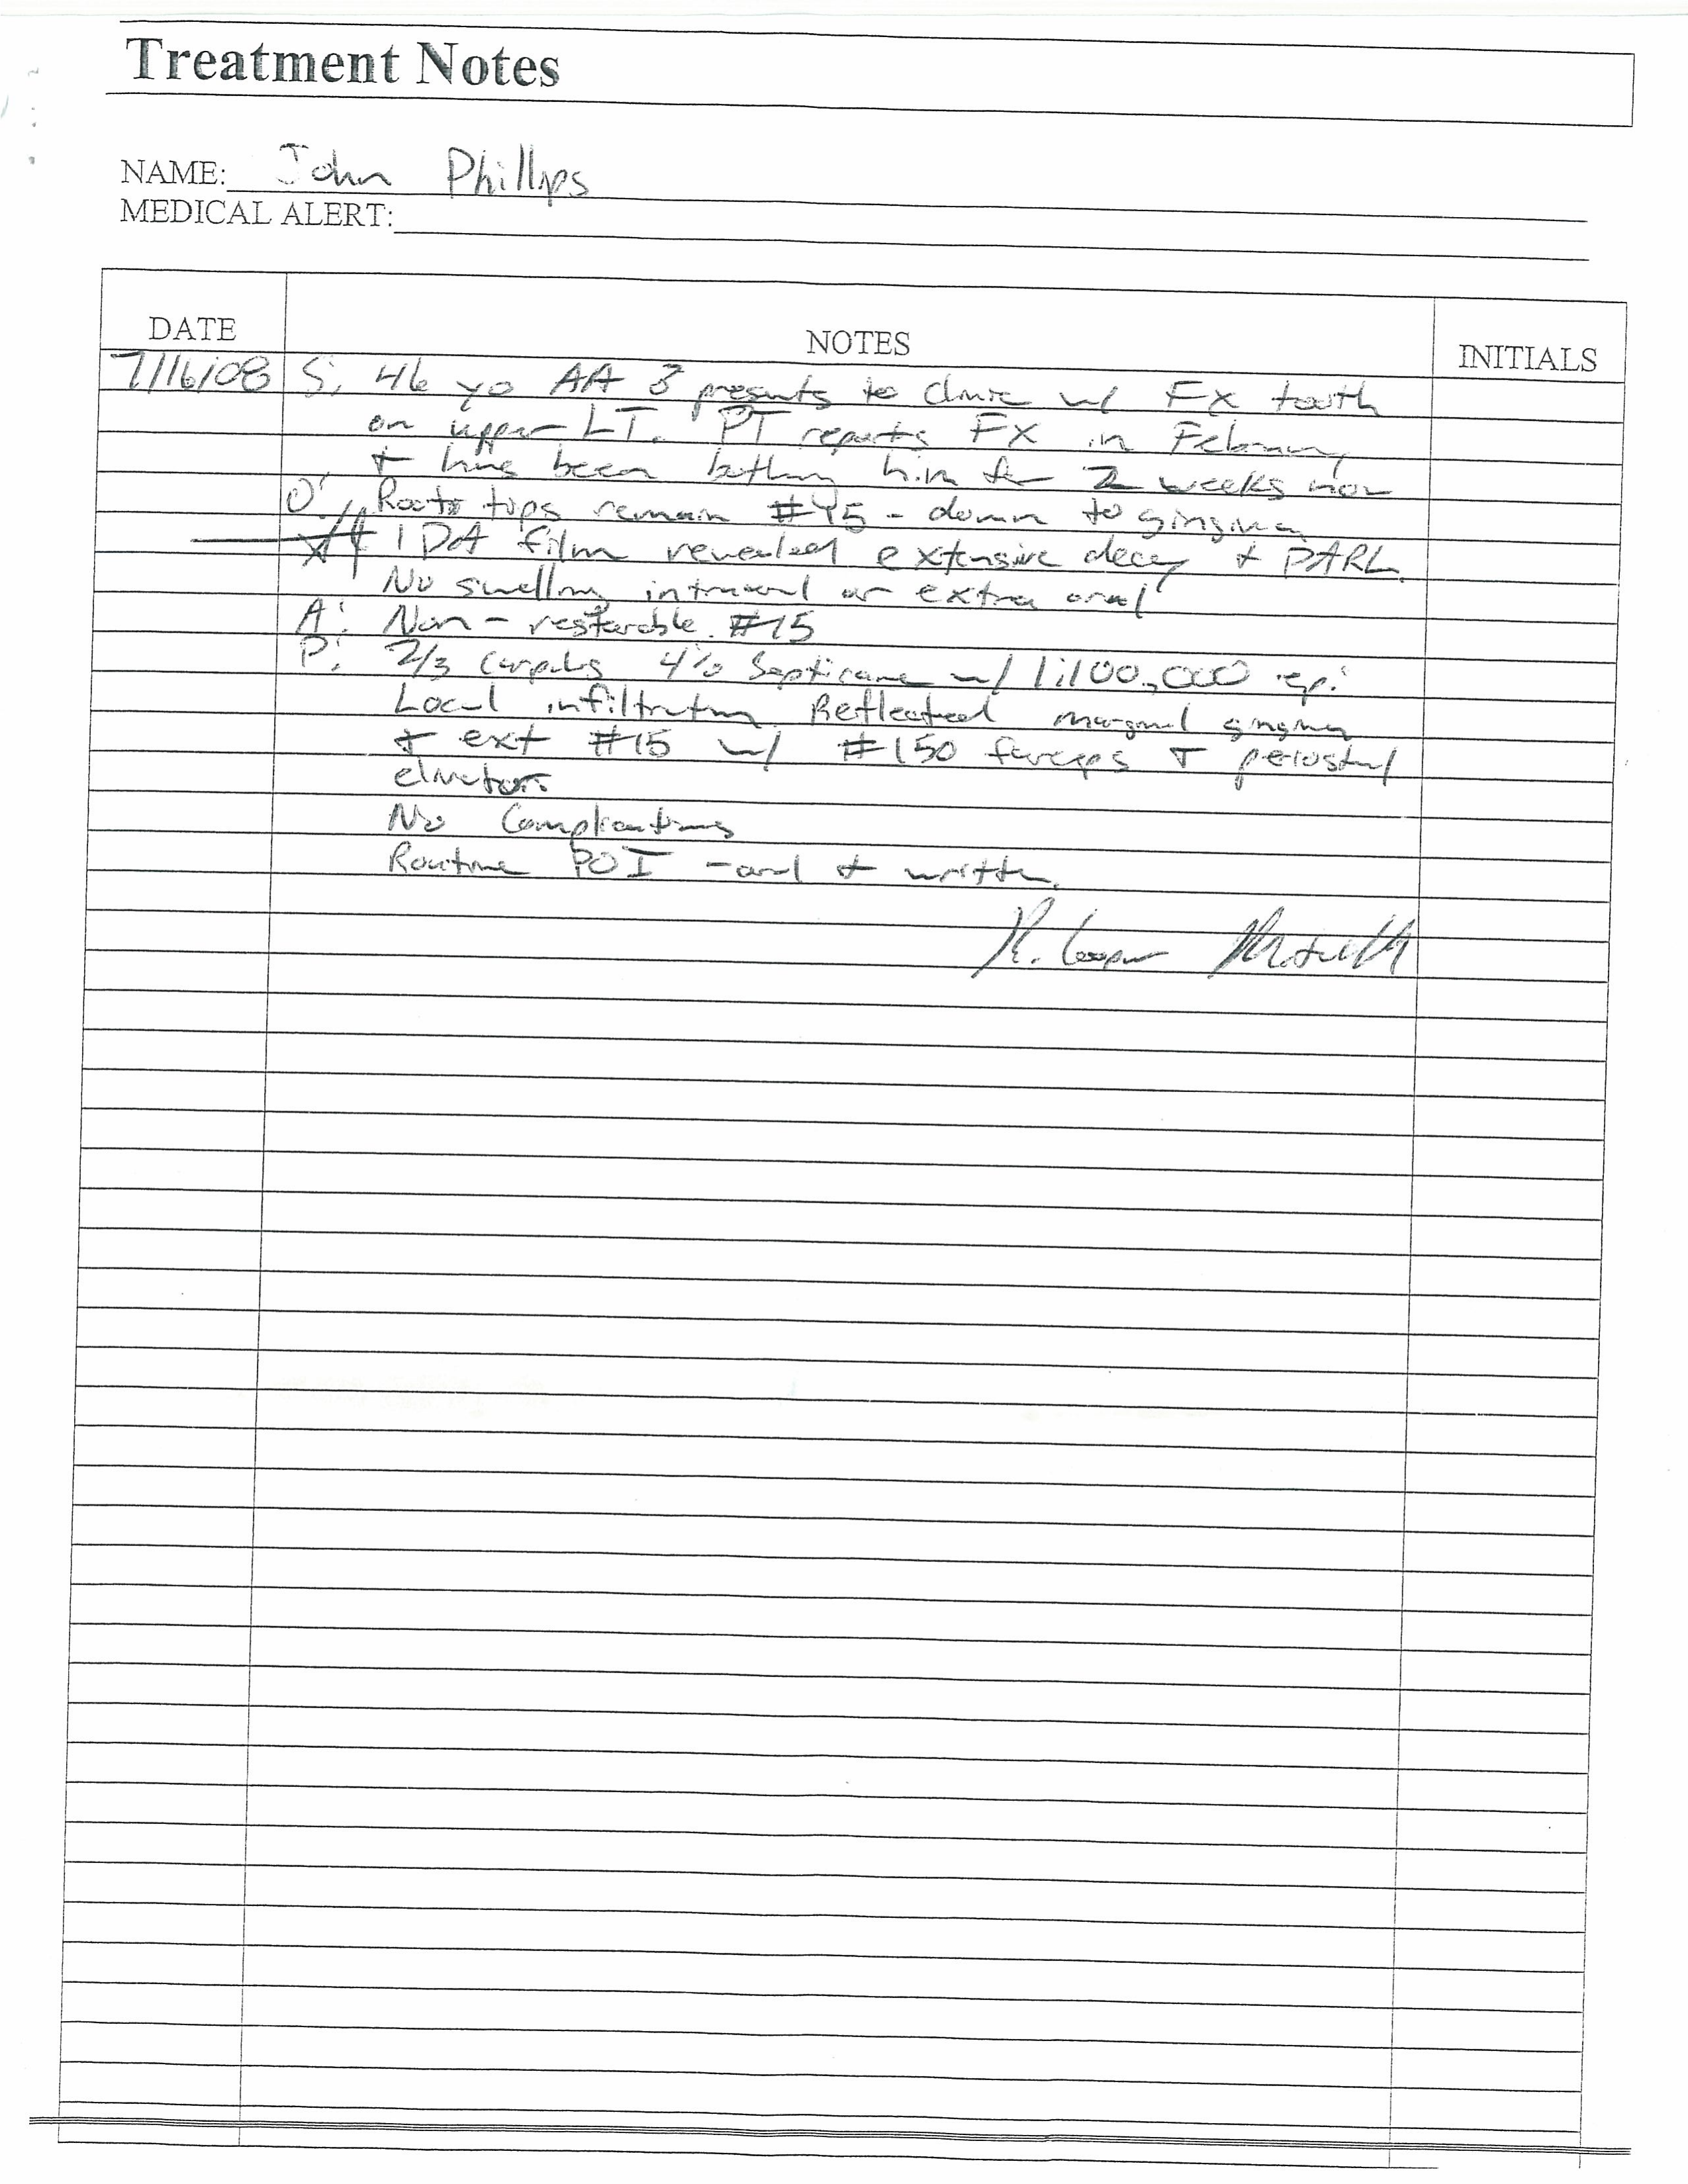 Treatment Notes
NAME: John Phillips
MEDICAL ALERT:
DATE NOTES INITIALS
7/16/08 S: 46 yo AA ♂ presents to clinic w/ FX tooth
on upper LT. PT reports FX in February
+ has been bothing him for 2 weeks now
O: Root tips remain #15 - down to gingiva
1 PA film revealed extensive decay + PARL.
No swelling intraoral or extra oral
A: Non-restorable #15
P: 2/3 carpules 4% Septicane w/ 1:100,000 epi
Local infiltration. Reflected marginal gingiva
+ ext #15 w/ #150 forceps + periosteal
elevators
No Complications
Routine POI - oral + written.
R. Cooper